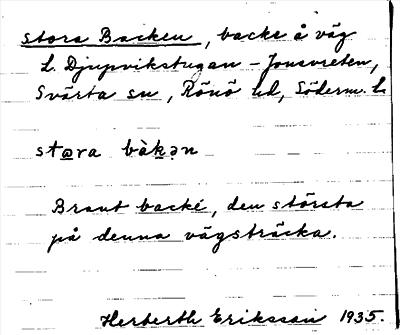 stora Backen, backe å väg
L. Djupvikstugan – Jonsvreten,
Svärta sn, Rönö hd, Söderm. L.
stɷra bàkən
Brant backe, den största
på denna vägsträcka.
Herberth Eriksson 1935.